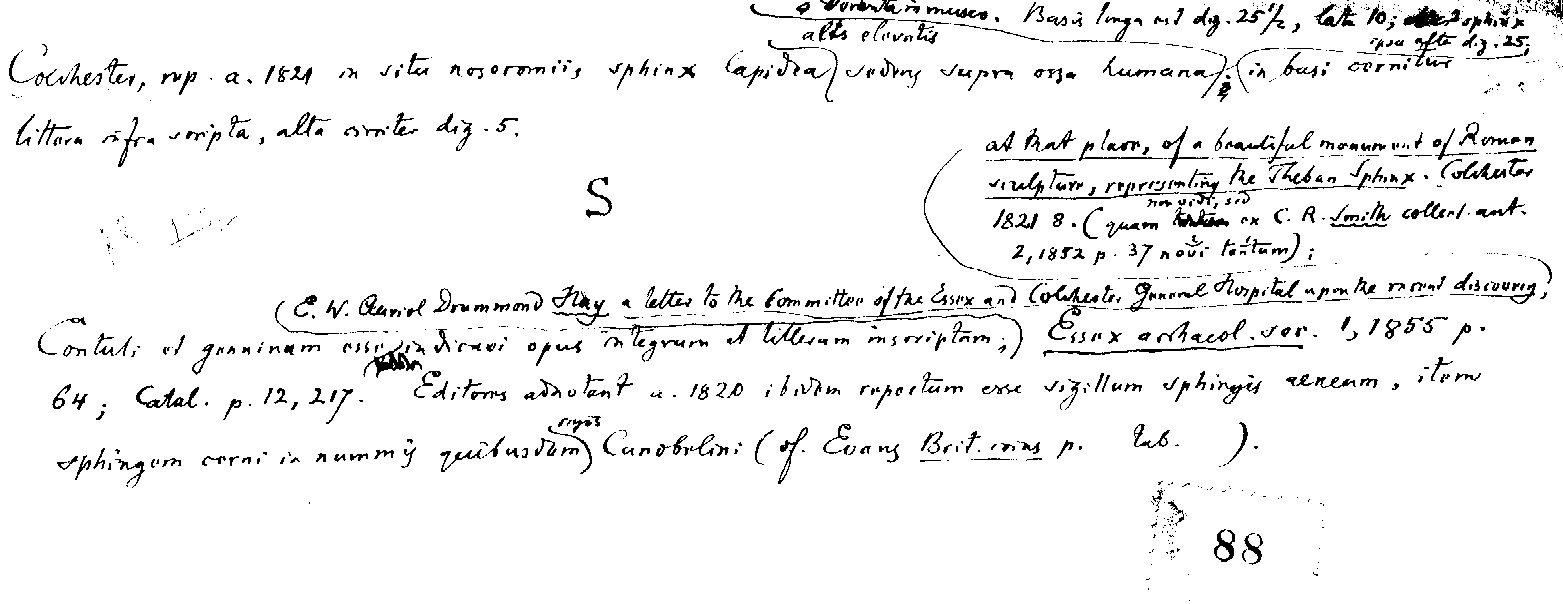 servata in museo. Basis longa est dig. 25 1/2, lata 10; sphinx
alis elevatis
ipsa alta dig. 25;
Colchester, rep. a. 1821 in situ nosocomii, sphinx lapidea sedens supra ossa humana; in basi cernitur
littera infra scripta, alta circiter dig. 5.
S
at that place, of a beautiful monument of Roman
sculpture, representing the Theban Sphinx. Colchester
non vidi, sed
1821 8. (quam ex C. R. Smith collect. ant.
2, 1852 p. 37 novi tantum);
(E. W. Auriol Drummond Hay a letter to the Committee of the Essex and Colchester General Hospital upon the recent discovery,
Contuli et genuinum esse iudicavi opus integrum et litteram inscriptam; Essex archaeol. soc. 1, 1855 p.
64; Catal. p. 12, 217. Editores adnotant a. 1820 ibidem repertum esse sigillum sphingis aeneum, item
sphingem cerni in nummis quibusdam Cunobelini (cf. Evans Brit. coins p. tab. ).
88